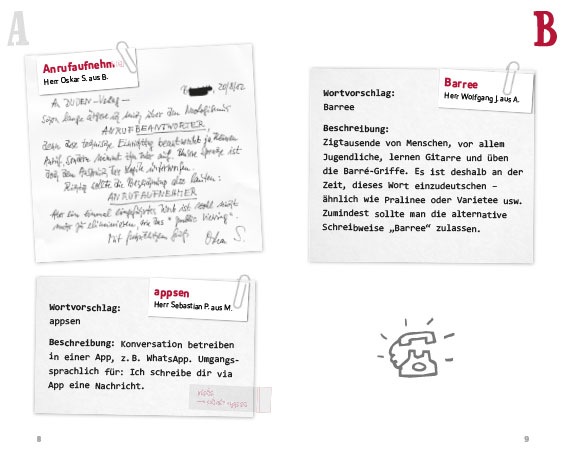 A
Anrufaufnehm
Herr Oskar S. aus B.
20/8/02
An DUDEN-Verlag –
Schon lange ärgere ich mich über den Neologismus
ANRUFBEANTWORTER,
denn diese Einrichtung beantwortet ja keinen
Anruf, sondern nimmt ihn nur auf. Unsere Sprache ist
doch der Logik
Richtig sollte die Bezeichnung also lauten:
ANRUFAUFNEHMER
Aber ein einmal eingeführtes Wort ist wohl nicht
mehr zu eliminieren, wie das "public viewing".
Mit freundlichem Gruß, Oskar S.
appsen
Herr Sebastian P. aus M.
Wortvorschlag:
appsen
Beschreibung: Konversation betreiben
in einer App, z. B. WhatsApp. Umgangs-
sprachlich für: Ich schreibe dir via
App eine Nachricht.
8
B
Barree
Herr Wolfgang J. aus A.
Wortvorschlag:
Barree
Beschreibung:
Zigtausende von Menschen, vor allem
Jugendliche, lernen Gitarre und üben
die Barré-Griffe. Es ist deshalb an der
Zeit, dieses Wort einzudeutschen –
ähnlich wie Pralinee oder Varietee usw.
Zumindest sollte man die alternative
Schreibweise „Barree“ zulassen.
9